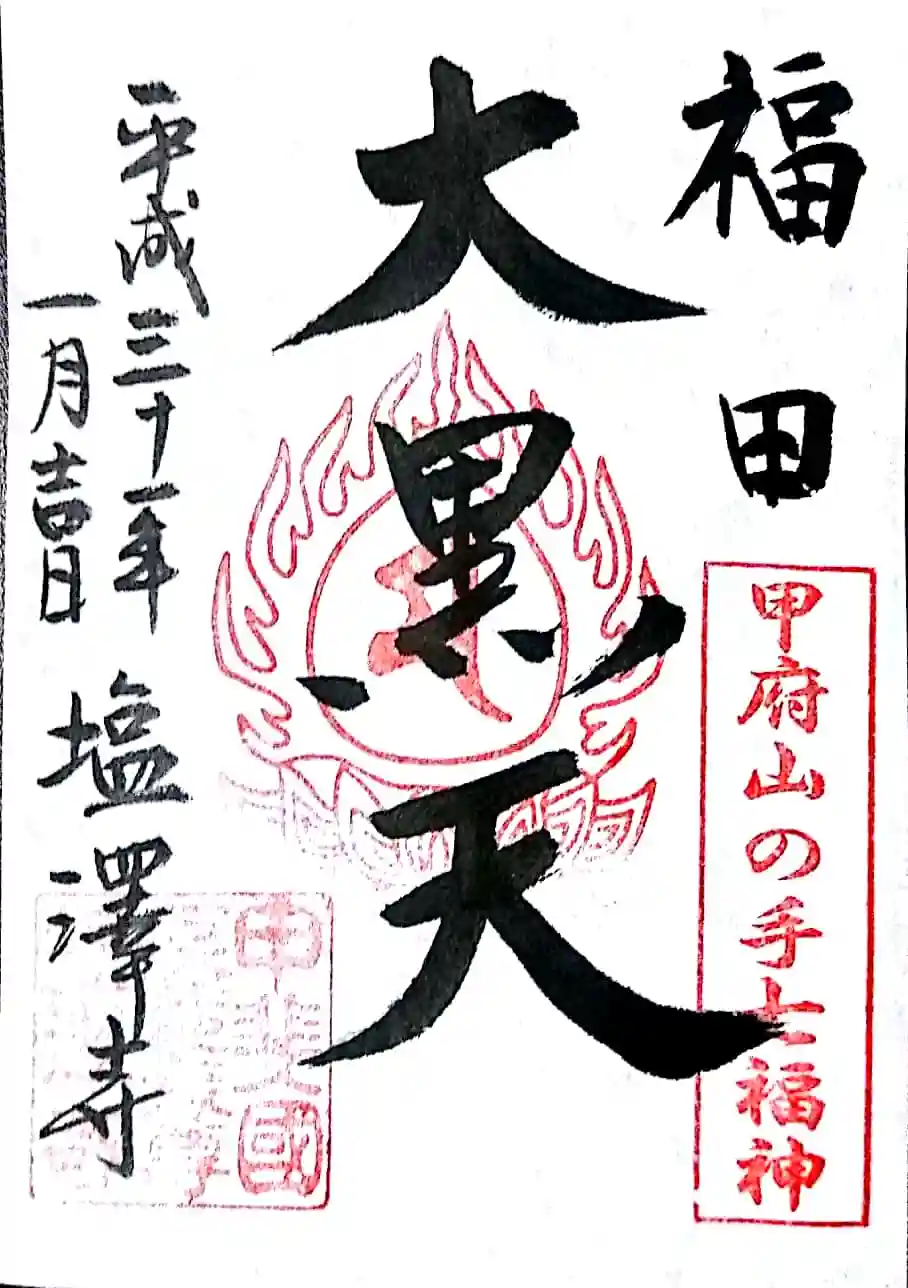 福田
甲府山の手七福神
大黒天
平成三十一年
一月吉日
塩澤寺
甲斐國